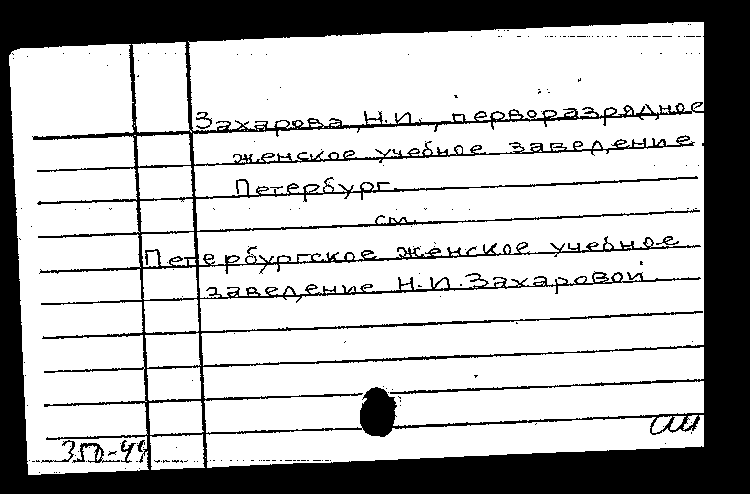 Захарова, Н.И., перворазрядное
женское учебное заведение.
Петербург.
см.
Петербургское женское учебное
заведение Н.И.Захаровой.
350-44